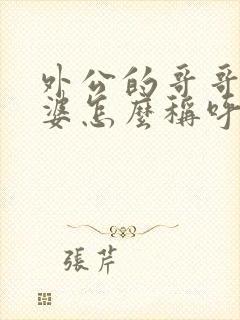 外公的哥哥
婆怎麼稱呼
張芹